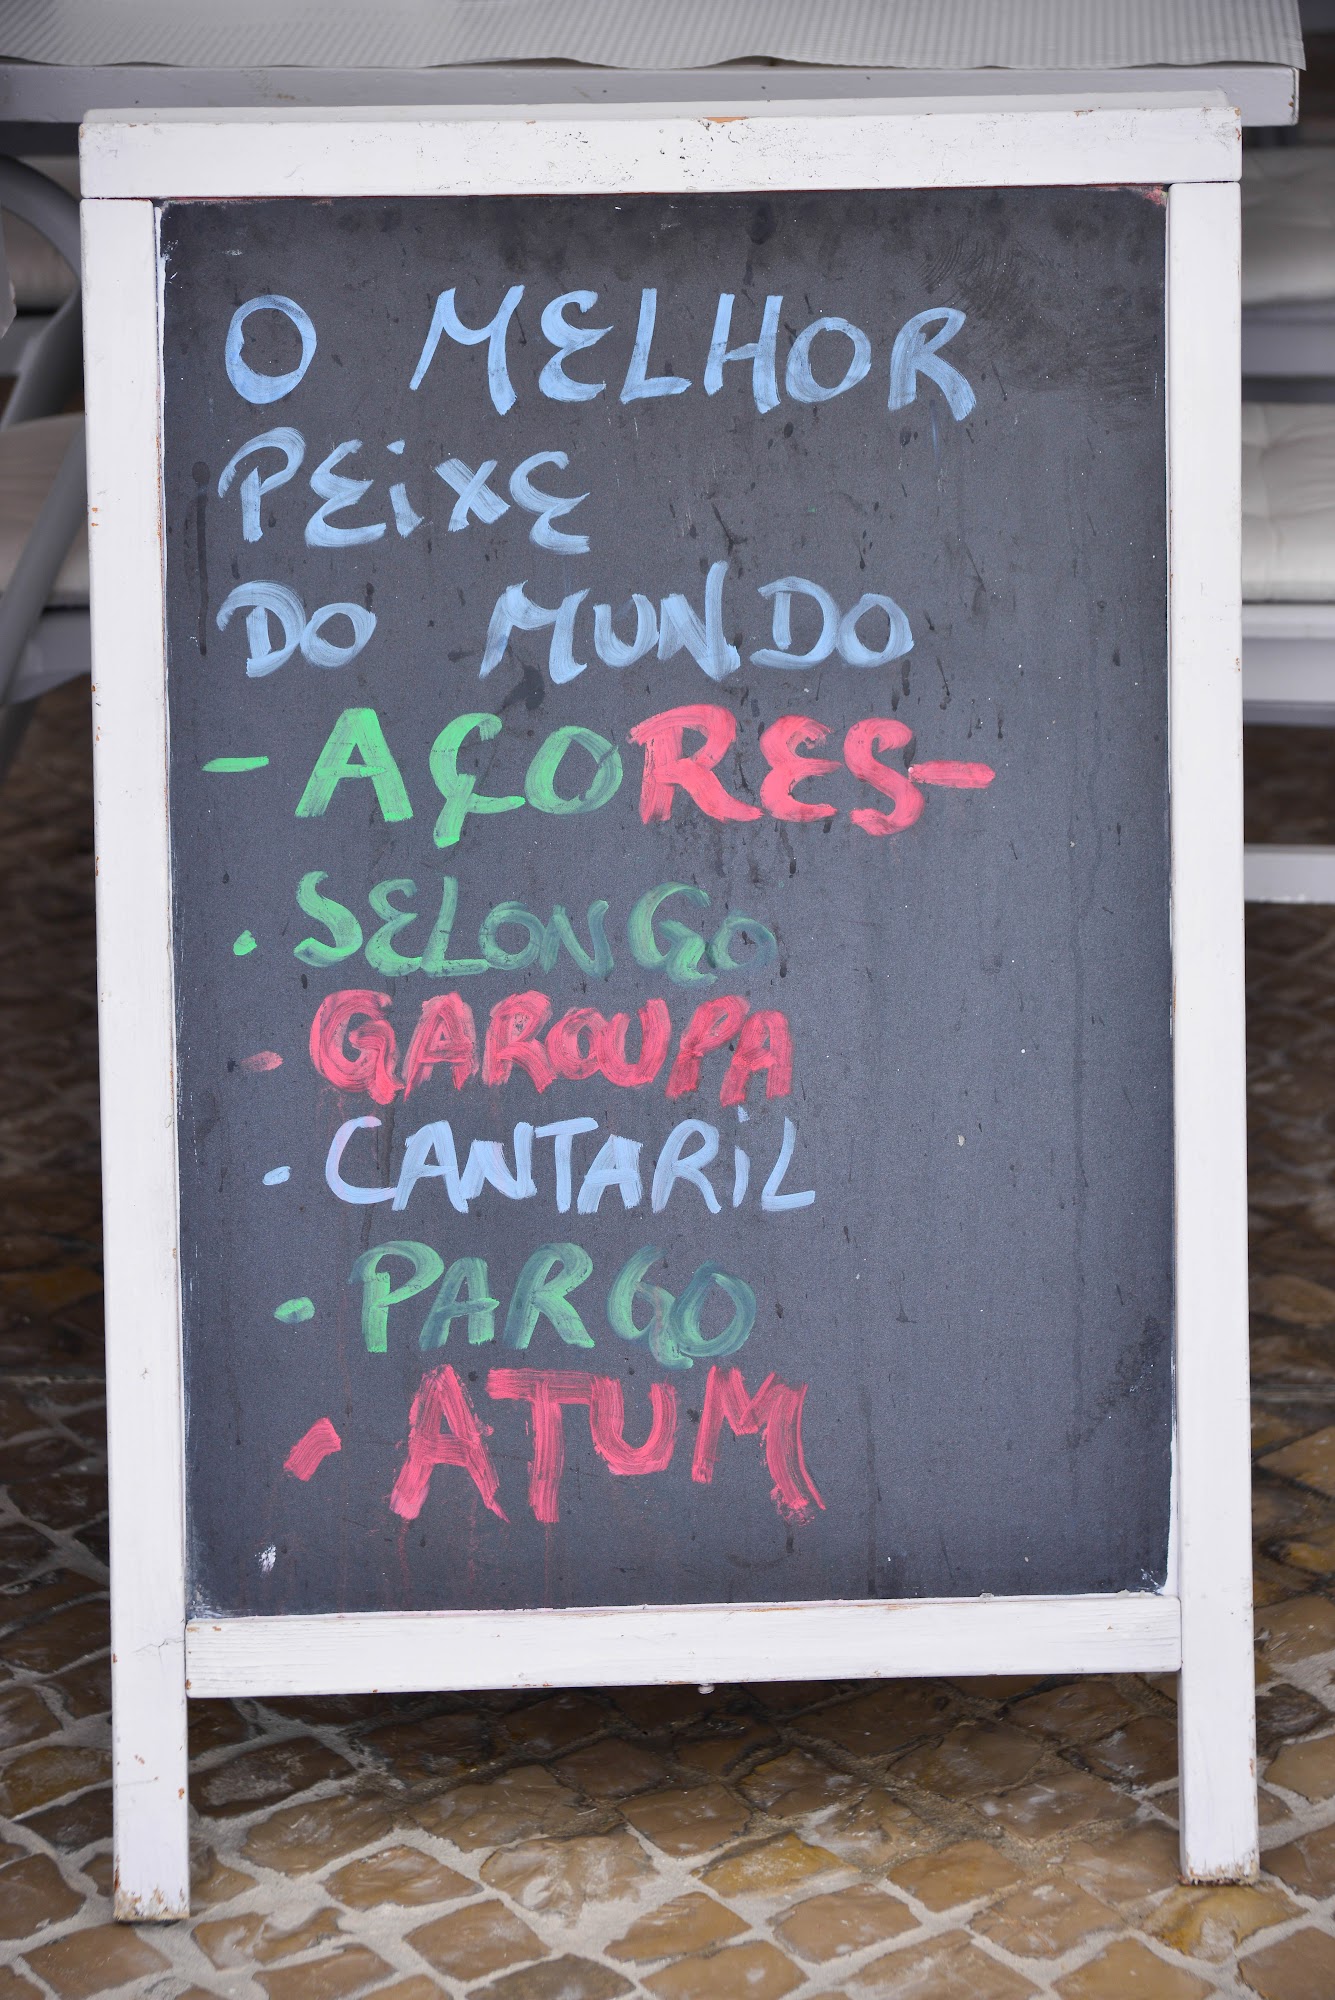 O MELHOR
PEiXE
DO MUNDO
- AÇORES -
. SELONGO
- GAROUPA
. CANTARiL
- PARGO
- ATUM